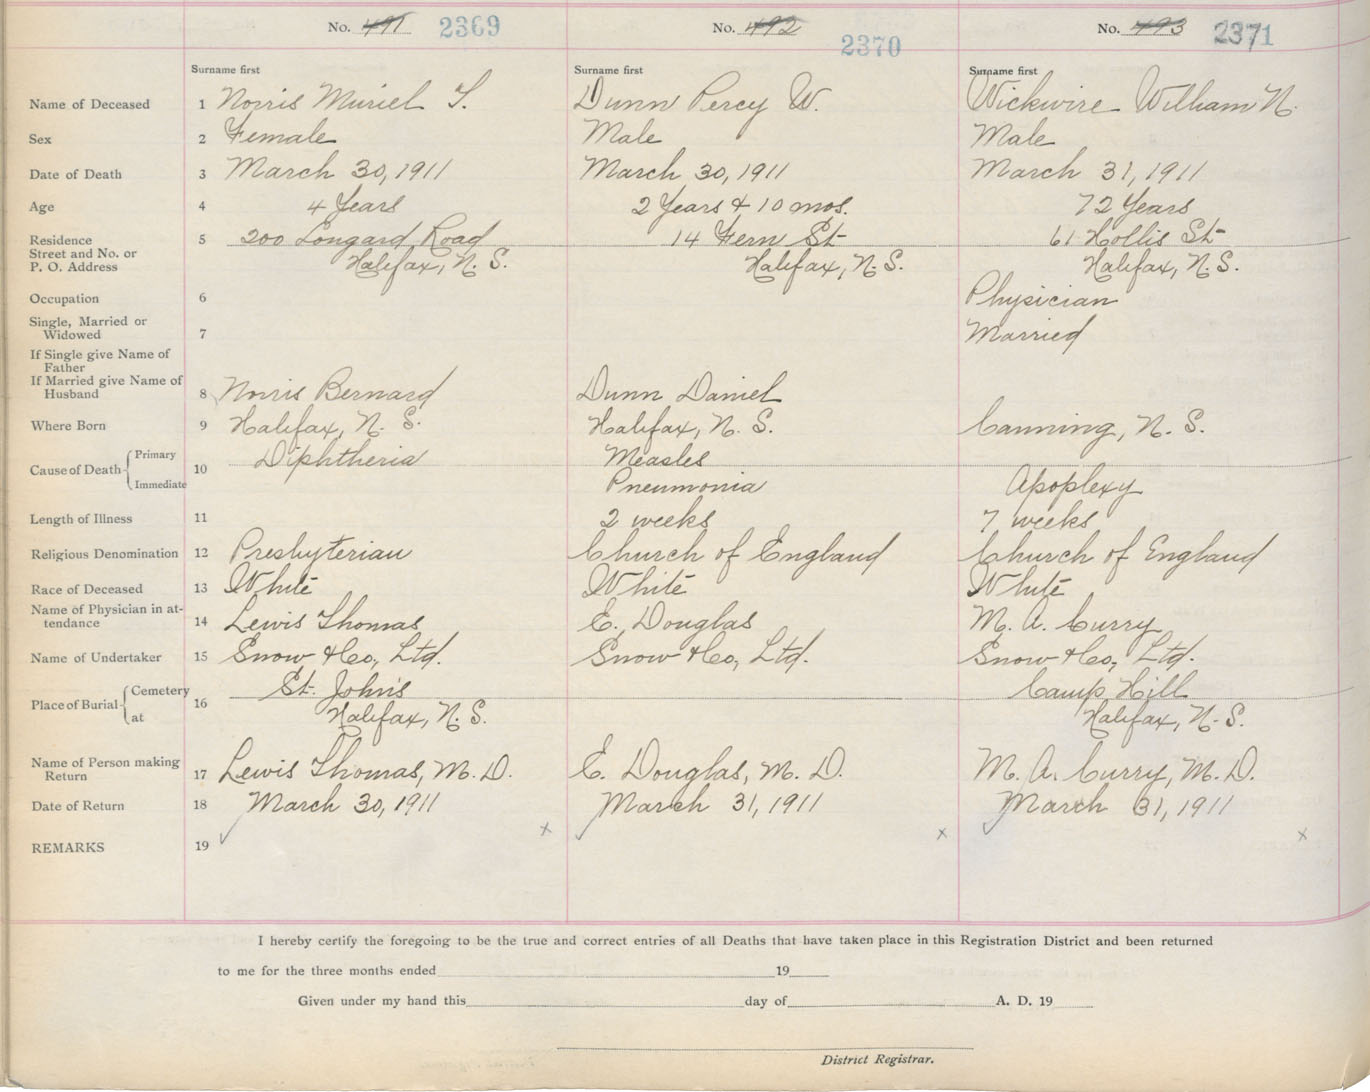 No. 491 2369 No. 492 2370 No. 493 2371
Surname first Surname first Surname first
Name of Deceased 1 Norris Muriel T. Dunn Percy W. Wickwire William N.
Sex 2 Female Male Male
Date of Death 3 March 30, 1911 March 30, 1911 March 31, 1911
Age 4 4 Years 2 Years & 10 mos. 72 Years
Residence 5 200 Longard Road 14 Fern St 61 Hollis St
Street and No. or
P. O. Address Halifax, N. S. Halifax, N. S. Halifax, N. S.
Occupation 6 Physician
Single, Married or
Widowed 7 Married
If Single give Name of
Father
If Married give Name of
Husband 8 Norris Bernard Dunn Daniel
Where Born 9 Halifax, N. S. Halifax, N. S. Canning, N. S.
Cause of Death 10 Primary Diphtheria Measles
Immediate Pneumonia Apoplexy
Length of Illness 11 2 weeks 7 weeks
Religious Denomination 12 Presbyterian Church of England Church of England
Race of Deceased 13 White White White
Name of Physician in at-
tendance 14 Lewis Thomas E. Douglas M. A. Curry
Name of Undertaker 15 Snow & Co., Ltd. Snow & Co., Ltd. Snow & Co., Ltd.
Place of Burial 16 Cemetery St. John's Camp Hill
at Halifax, N. S. Halifax, N. S.
Name of Person making
Return 17 Lewis Thomas, M. D. E. Douglas, M. D. M. A. Curry, M. D.
Date of Return 18 March 30, 1911 March 31, 1911 March 31, 1911
REMARKS 19
I hereby certify the foregoing to be the true and correct entries of all Deaths that have taken place in this Registration District and been returned
to me for the three months ended 19
Given under my hand this day of A. D. 19
District Registrar.